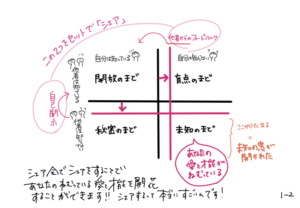 この2つをセットで「シェア」
他者からのフィードバック
自分は知っている
自分は知らない
他者は知っている
開放のまど
盲点のまど
自己開示
他者は知らない
秘密のまど
未知のまど
あなたの
愛と才能が
ねむっている
ここが小さくなる
=
未知の窓が
開かれた
シェア会でシェアをすることで
あなたのねむっている愛と才能を開花
することができます!! シェアするって本当にすごいんです!
1-2